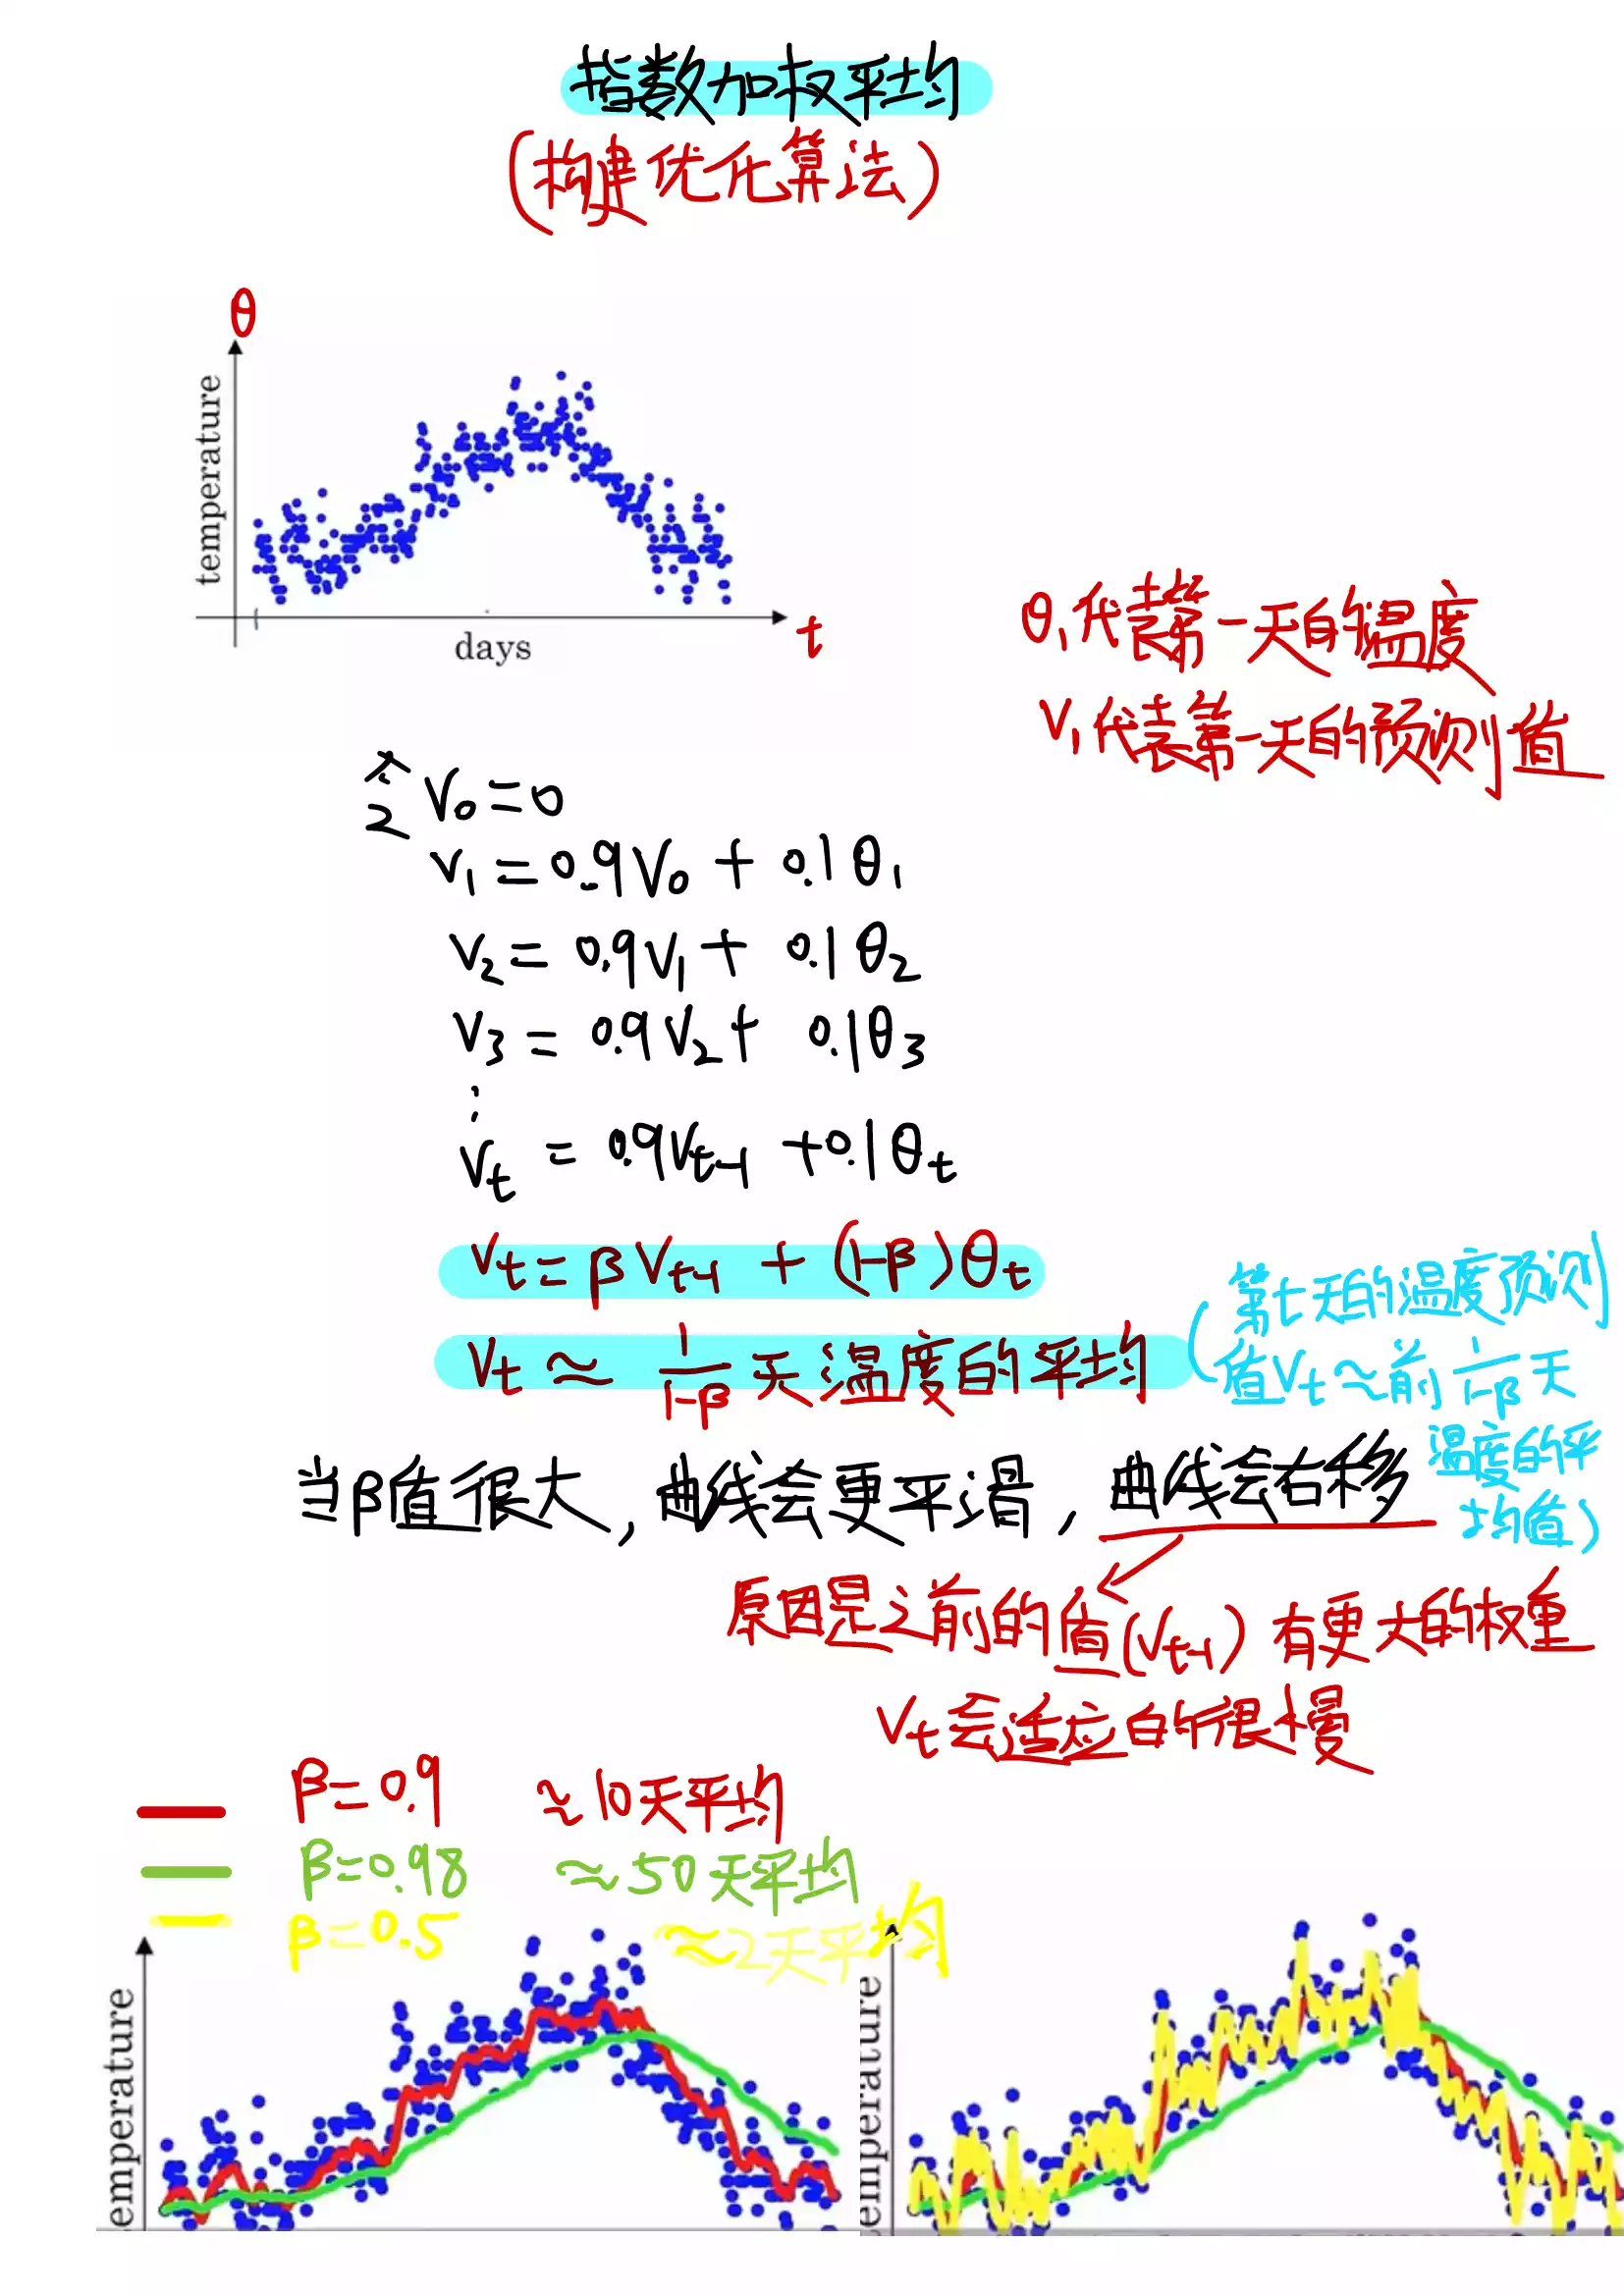 指数加权平均
(构建优化算法)
θ
temperature
days
t
θ₁代表第一天的温度
V₁代表第一天的预测值
令 V₀=0
V₁=0.9V₀+0.1θ₁
V₂=0.9V₁+0.1θ₂
V₃=0.9V₂+0.1θ₃
⋮
Vₜ=0.9Vₜ₋₁+0.1θₜ
Vₜ=βVₜ₋₁+(1-β)θₜ
Vₜ≈1/(1-β)天温度的平均
(第t天的温度预测
值Vₜ≈前1/(1-β)天
温度的平
均值)
当β值很大,曲线会更平滑,曲线会右移
原因是之前的值(Vₜ₋₁)有更大的权重
Vₜ会适应的很慢
β=0.9 ≈10天平均
β=0.98 ≈50天平均
β=0.5 ≈2天平均
temperature
emperature